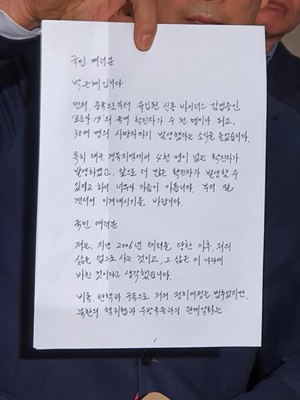 국민 여러분
박근혜입니다
먼저, 중국으로부터 유입된 신종 바이러스 감염증인
코로나 19의 국내 확진자가 수 천 명이나 되고,
30여 명의 사망자까지 발생했다는 소식을 들었습니다.
특히 대구, 경북지역에서 4천 명이 넘는 확진자가
발생하였고, 앞으로 더 많은 확진자가 발생할 수
있다고 하니 너무나 마음이 아픕니다. 부디 잘
견디어 이겨내시기를 바랍니다.
국민 여러분
저는, 지난 2006년 테러를 당한 이후, 저의
삶은 덤으로 사는 것이고, 그 삶은 이 나라에
바친 것이라고 생각했습니다.
비록, 탄핵과 구속으로 저의 정치여정은 멈추었지만,
북한의 핵위협과 우방국들과의 관계악화는
1